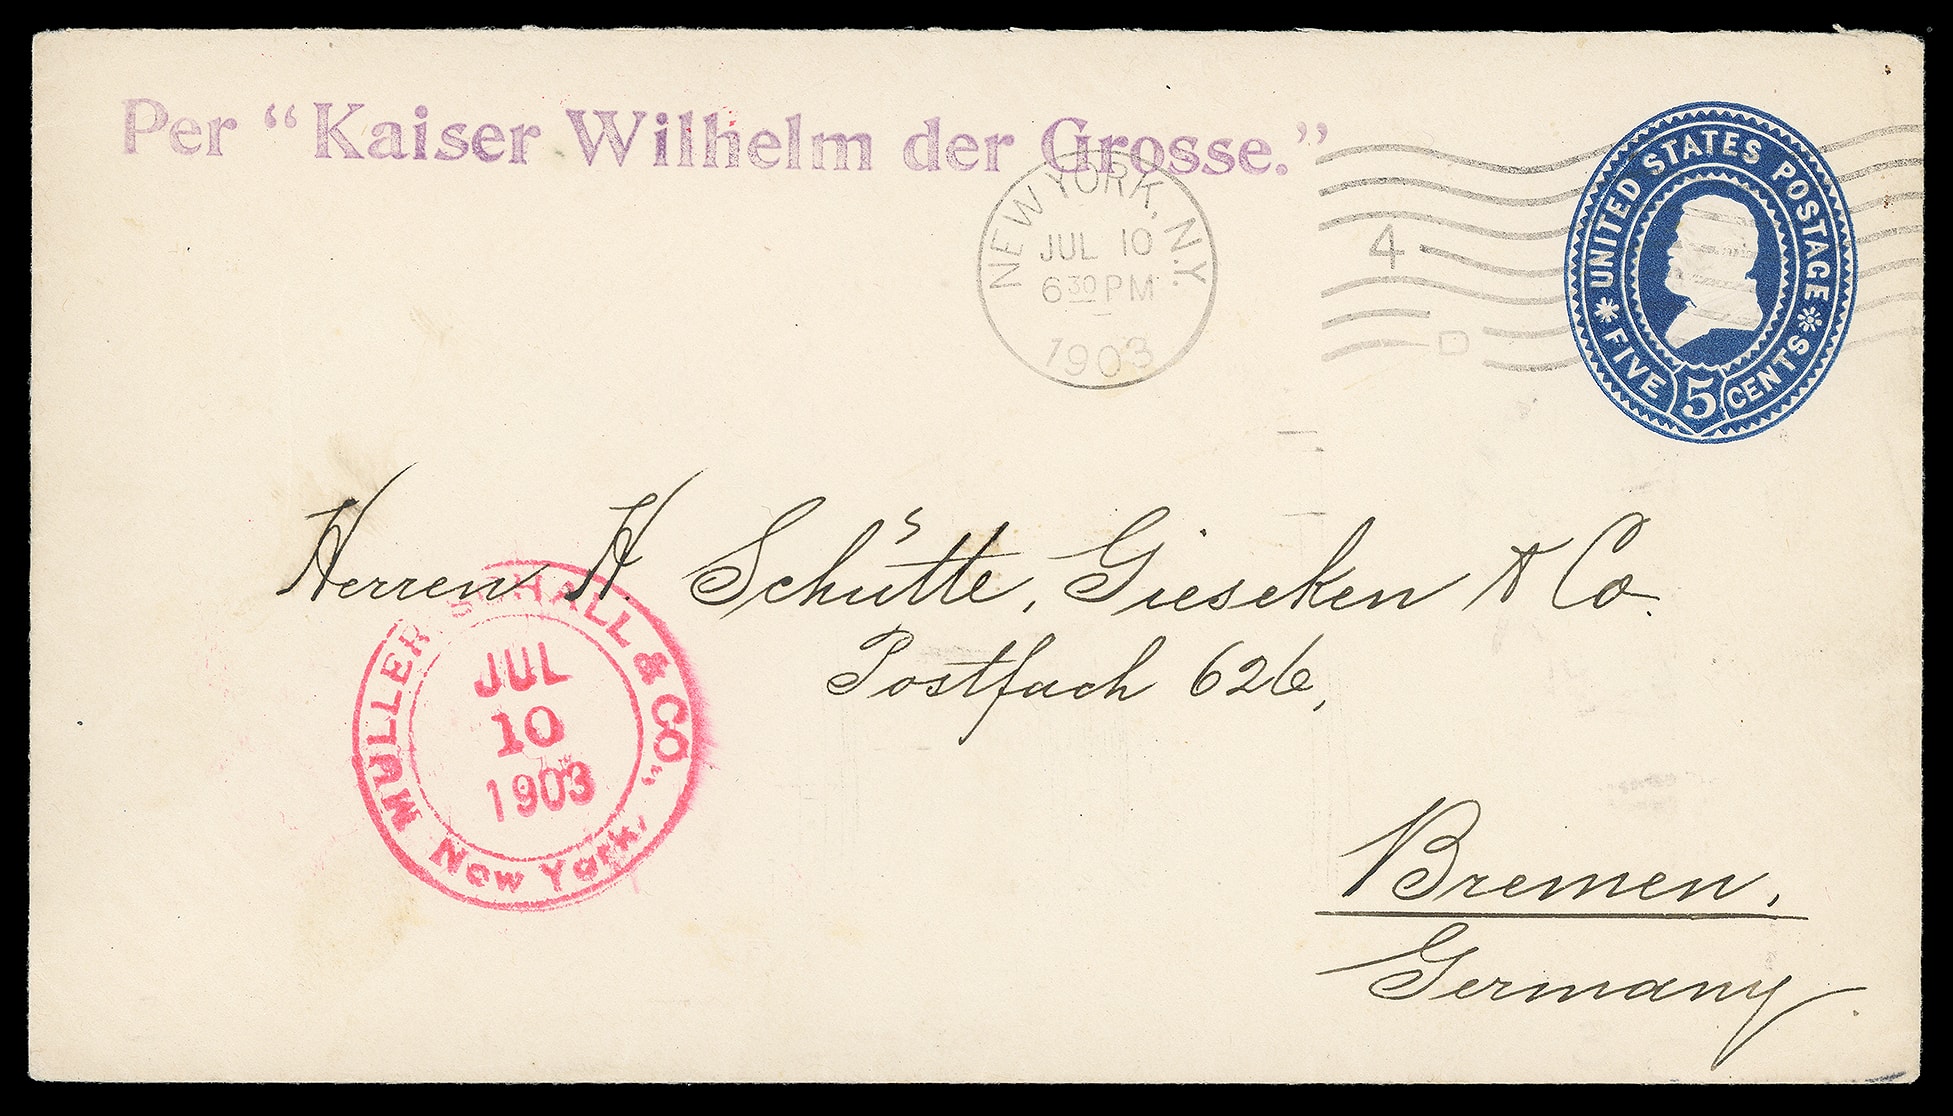 Per "Kaiser Wilhelm der Grosse."
NEW YORK, N.Y.
JUL 10
6 30 PM
1903
4
D
UNITED STATES POSTAGE
FIVE 5 CENTS
Herren H. Schütte, Gieseken & Co.
Postfach 626,
Bremen,
Germany
MULLER SCHALL & CO.,
JUL
10
1903
New York.